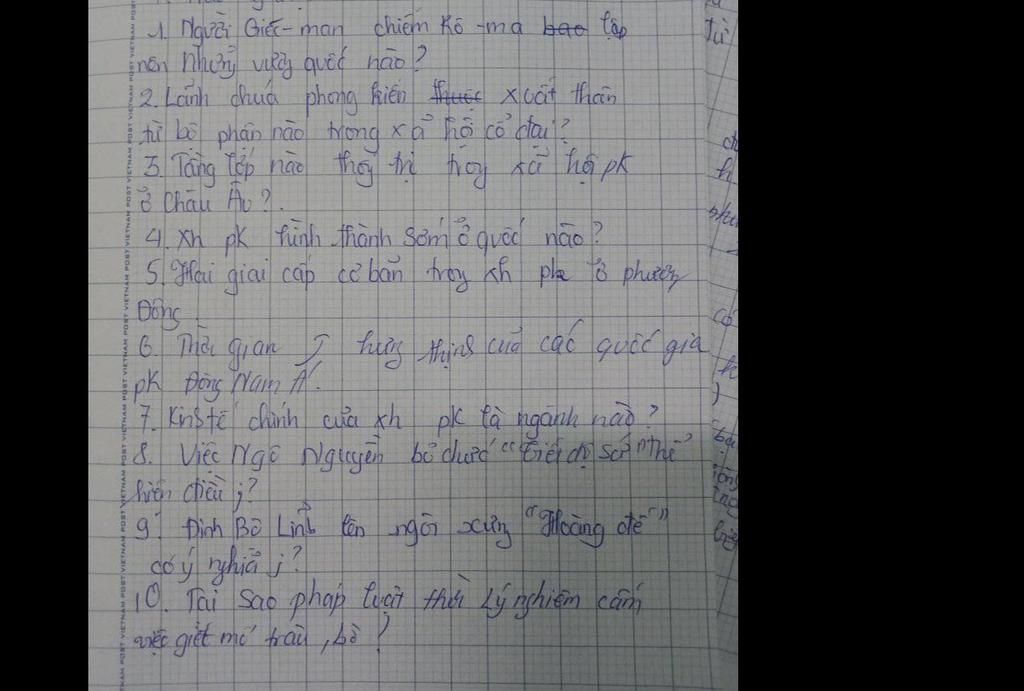 1. Người Giéc-man chiếm Rô-ma bao lập
nên những vương quốc nào?
2. Lãnh chúa phong kiến thuộc xuất thân
từ bộ phận nào trong xã hội cổ đại?
3. Tầng lớp nào thống trị trong xã hội pk
ở Châu Âu?.
4. xh pk hình thành sớm ở quốc nào?
5. Hai giai cấp cơ bản trong xh pk ở phương
Đông.
6. Thời gian hưng thịnh của các quốc gia
pk Đông Nam Á.
7. Kinh tế chính của xh pk là ngành nào?
8. Việc Ngô Nguyễn bỏ chức "tiết độ sứ" thể
hiện điều j?
9. Đinh Bộ Lĩnh lên ngôi xưng "Hoàng đế"
có ý nghĩa j?
10. Tại sao pháp luật thời Lý nghiêm cấm
việc giết mổ trâu, bò?
VIETNAM POST